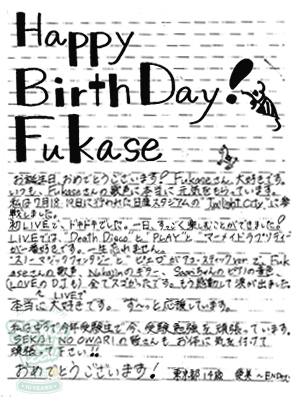 Happy
Birth Day!
Fukase
お誕生日、おめでとうございます! Fukaseさん、大好きです。
いつも、Fukaseさんの歌声に本当に元気をもらっています。
私は7月18、19日に行われた日産スタジアムの「Twilight City」に参
戦しました。
初LIVEで、ドキドキでした。一日、すっごく楽しむことができました!
LIVEでは、Death Discoと「PLAY」と「マーメイドラプソディー」
が一番好きです。一生忘れません。
「スノーマジックファンタジー」と「ピエロ」がアコースティックver.で、Fuk
aseさんの歌声、Nakajinのギター、Saoriちゃんのピアノの音色、
(LOVEのDJも)全てスゴかったです。もう感動して涙が出ました。
LIVEで
本当に大好きです。ずーっと応援しています。
私は中3で今年受験生で今、受験勉強を頑張っています。
SEKAI NO OWARIの皆さんもお体に気を付けて
頑張って下さい!!
おめでとうございます!
東京都 14歳 ~ENDer~